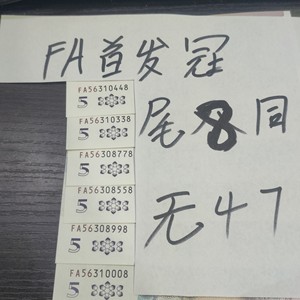 FA首发冠
FA56310448
5
FA56310338
5
FA56308778
5
FA56308558
5
FA56308998
5
FA56310008
5
尾8同
无47